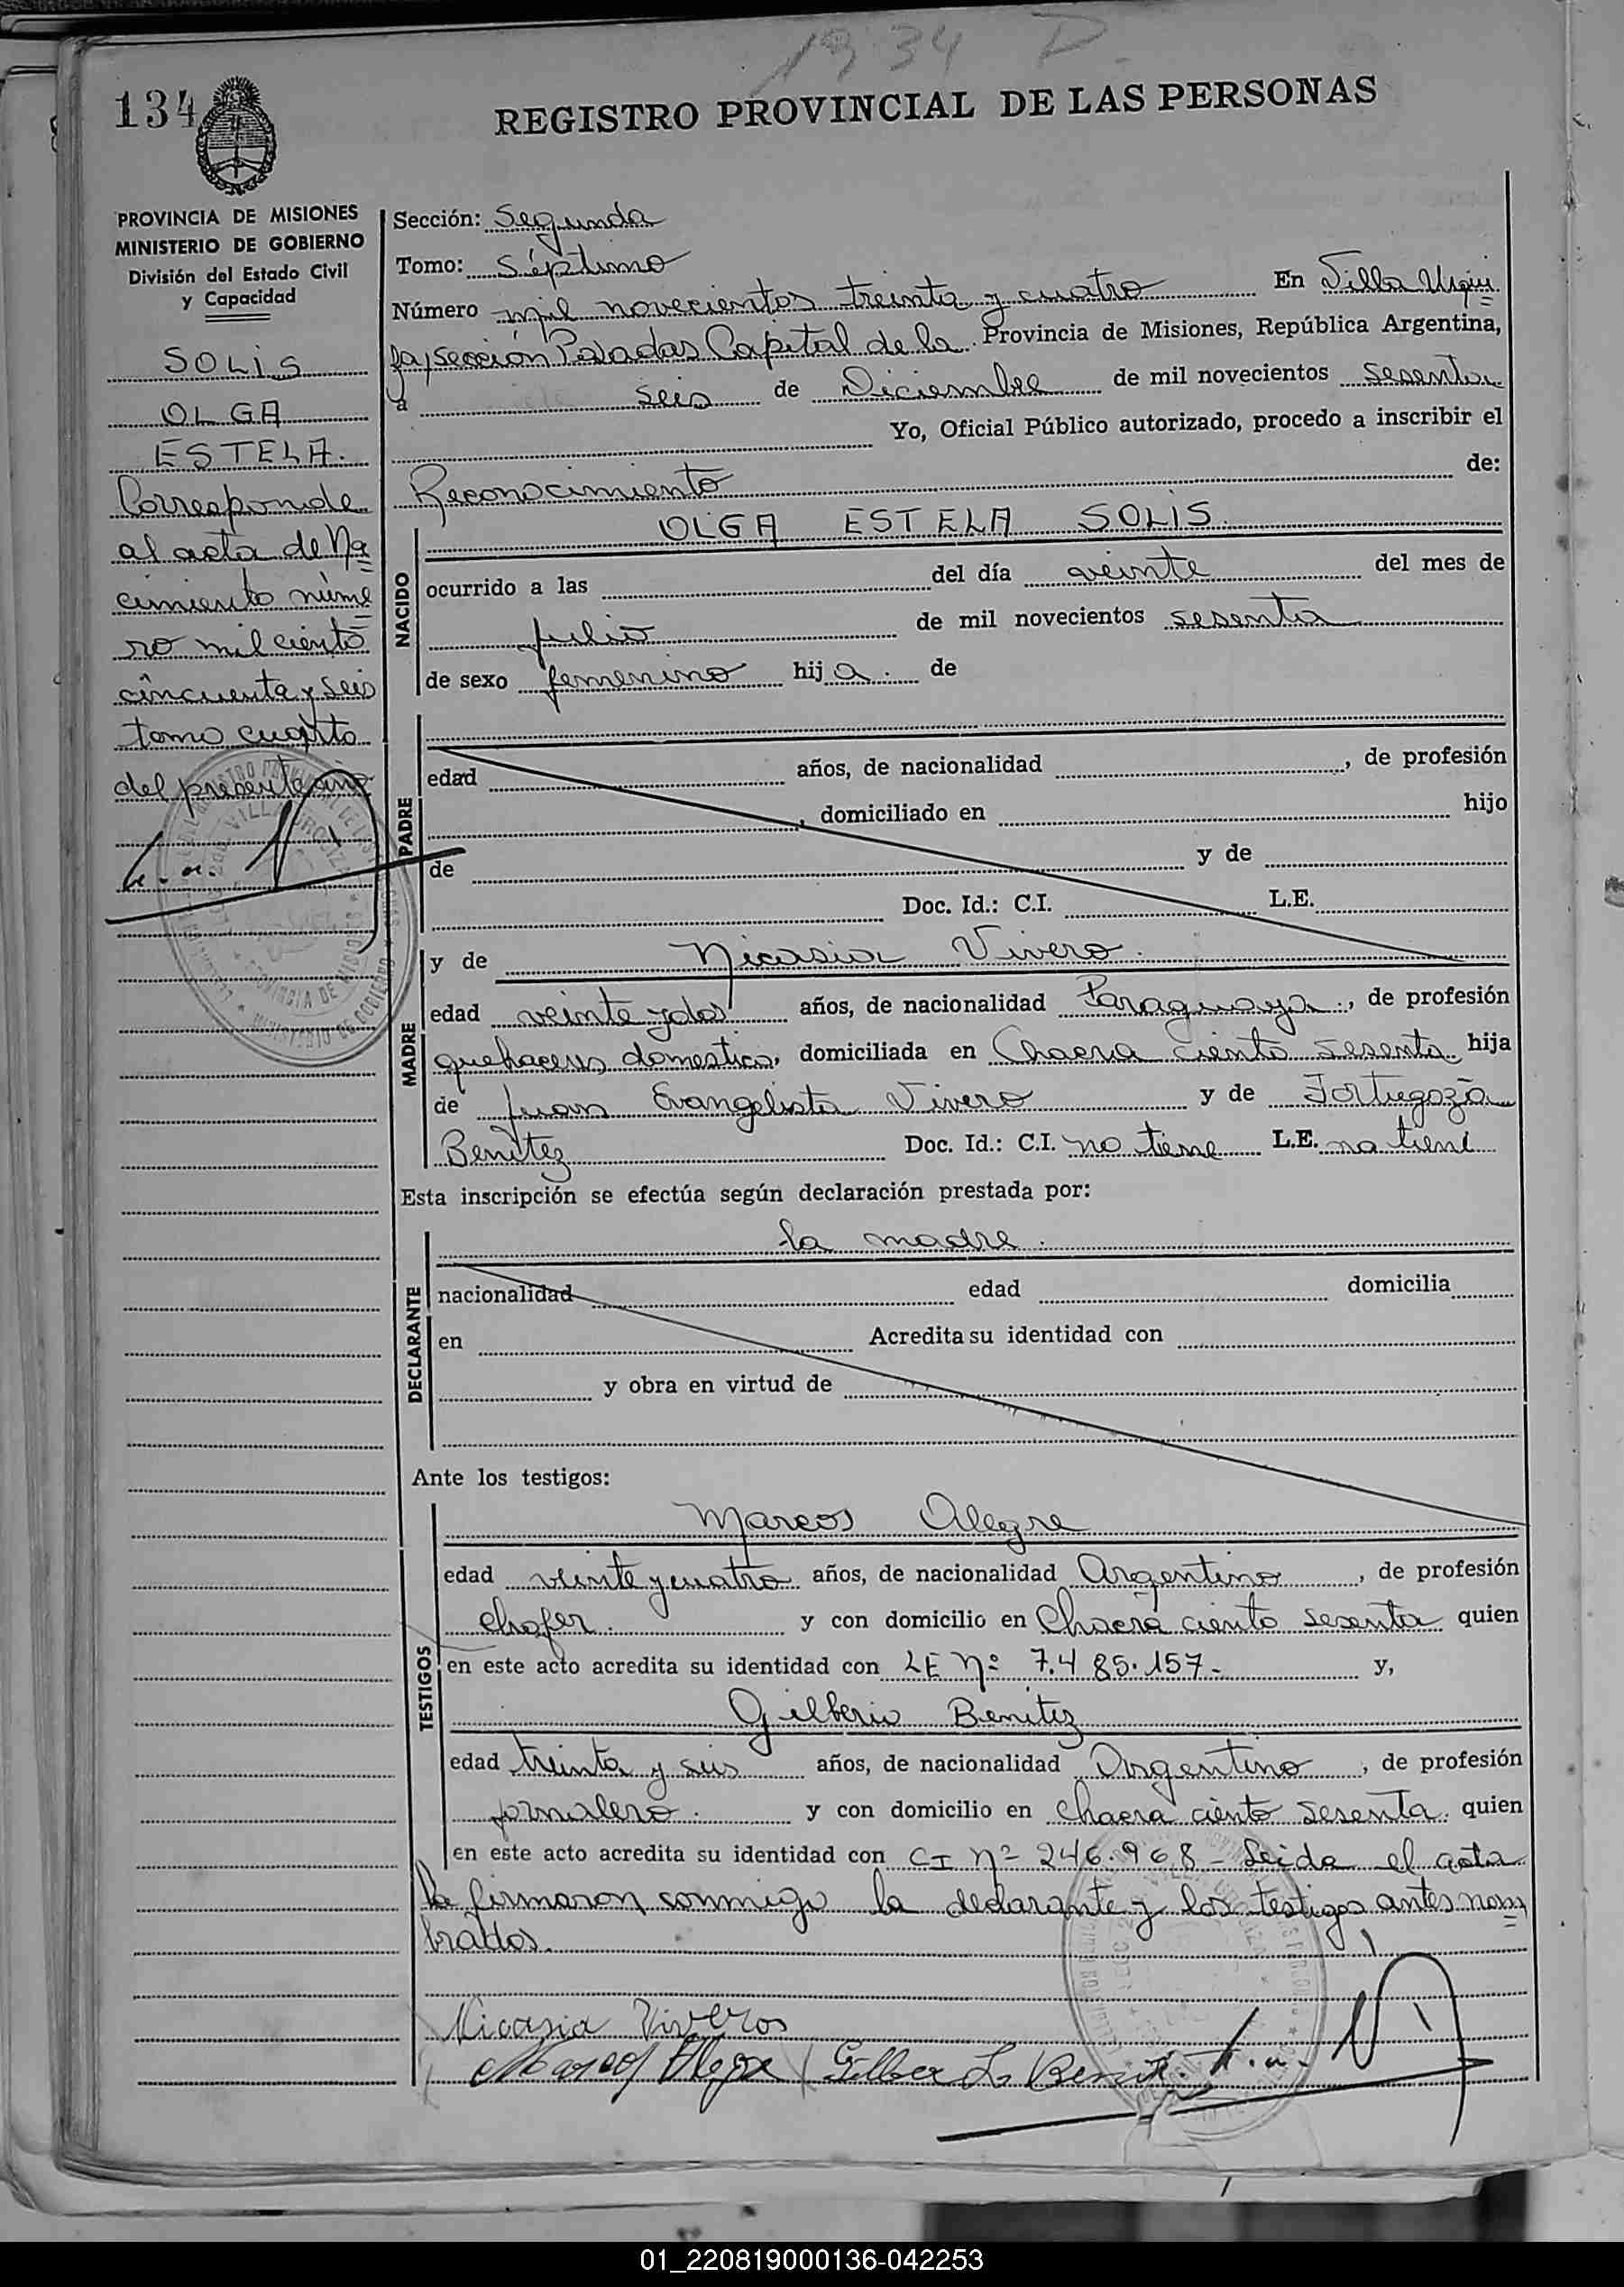 1934 D.
134
REGISTRO PROVINCIAL DE LAS PERSONAS
PROVINCIA DE MISIONES
MINISTERIO DE GOBIERNO
División del Estado Civil
y Capacidad
SOLIS
OLGA
ESTELA.
Corresponde
al acta de Na
cimiento núme
ro mil ciento
cincuenta y seis
tomo cuarto
del presente año
Sección: Segunda
Tomo: Séptimo
Número mil novecientos treinta y cuatro En Villa Urqui
za, sección Posadas Capital de la Provincia de Misiones, República Argentina,
a seis de Diciembre de mil novecientos sesenta
Yo, Oficial Público autorizado, procedo a inscribir el
Reconocimiento de:
NACIDO
OLGA ESTELA SOLIS.
ocurrido a las del día veinte del mes de
julio de mil novecientos sesenta
de sexo femenino hija. de
PADRE
edad años, de nacionalidad , de profesión
, domiciliado en hijo
de y de
Doc. Id.: C.I. L.E.
MADRE
y de Nicasia Vivero.
edad veinte y dos años, de nacionalidad Paraguaya., de profesión
quehaceres domestico, domiciliada en Chacra ciento sesenta hija
de Juan Evangelista Vivero y de Fortugoza
Benítez Doc. Id.: C.I. no tiene L.E. no tiene
Esta inscripción se efectúa según declaración prestada por:
DECLARANTE
la madre.
nacionalidad edad domicilia
en Acredita su identidad con
y obra en virtud de
Ante los testigos:
TESTIGOS
Marcos Alegre
edad veinte y cuatro años, de nacionalidad Argentino , de profesión
chofer. y con domicilio en Chacra ciento sesenta quien
en este acto acredita su identidad con LE Nº 7.485.157- y,
Gilberio Benitez
edad treinta y seis años, de nacionalidad Argentino , de profesión
jornalero. y con domicilio en chacra ciento sesenta. quien
en este acto acredita su identidad con CI Nº 246.968 - Leida el acta
la firmaron conmigo la declarante y los testigos antes nom
brados.
Nicasia Viveros
Marcos Alegre Gilber L. Benit.
01_220819000136-042253